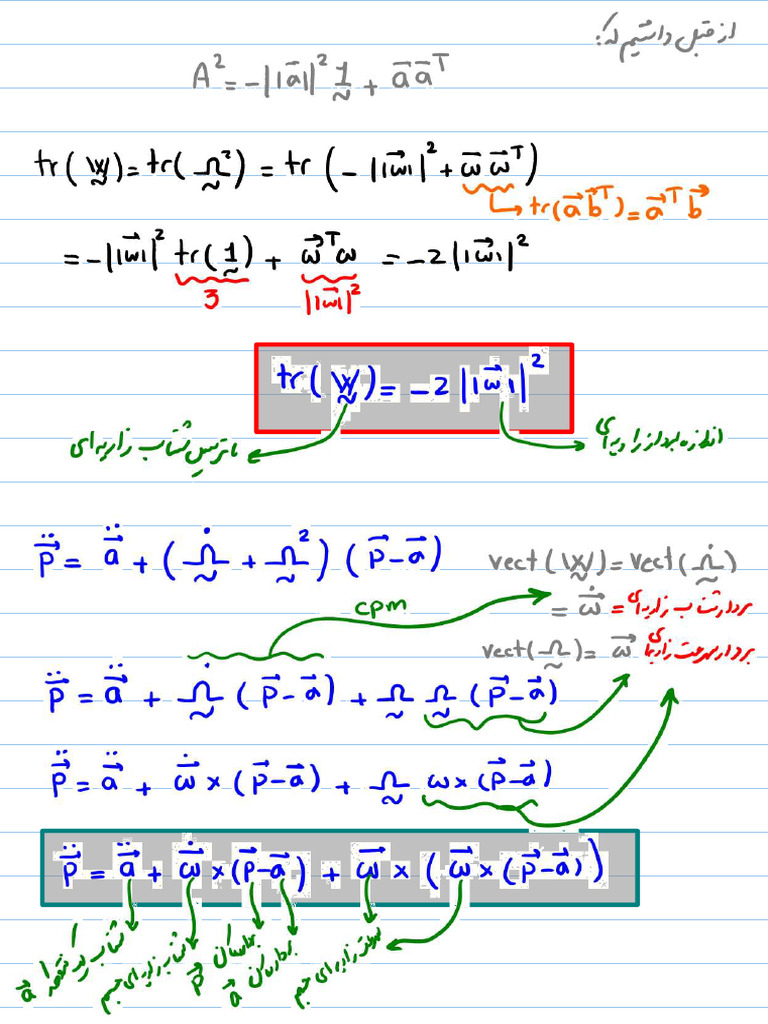 از قبل داشتیم که:
A² = -||a⃗||² 1̰ + a⃗ a⃗ᵀ
tr(W̰) = tr(Ω̰²) = tr(-||ω⃗||² + ω⃗ ω⃗ᵀ)
tr(a⃗ b⃗ᵀ) = a⃗ᵀ b⃗
= -||ω⃗||² tr(1̰) + ω⃗ᵀω = -2||ω⃗||²
3 ||ω⃗||²
tr(W̰) = -2||ω⃗||²
ماتریس شتاب زاویه‌ای
اندازه بردار زاویه‌ای
p⃗̈ = a⃗̈ + (Ω̰̇ + Ω̰²)(p⃗ - a⃗)
vect(W̰) = vect(Ω̰̇)
cpm
= ω⃗̇ = بردار شتاب زاویه‌ای
vect(Ω̰) = ω⃗ بردار سرعت زاویه‌ای
p⃗̈ = a⃗̈ + Ω̰̇ (p⃗ - a⃗) + Ω̰ Ω̰ (p⃗ - a⃗)
p⃗̈ = a⃗̈ + ω⃗̇ × (p⃗ - a⃗) + Ω̰ ω × (p⃗ - a⃗)
p⃗̈ = a⃗̈ + ω⃗̇ × (p⃗ - a⃗) + ω⃗ × (ω⃗ × (p⃗ - a⃗))
شتاب یک نقطه a⃗
شتاب زاویه‌ای جسم
بردار مکان p⃗
بردار مکان a⃗
سرعت زاویه‌ای جسم